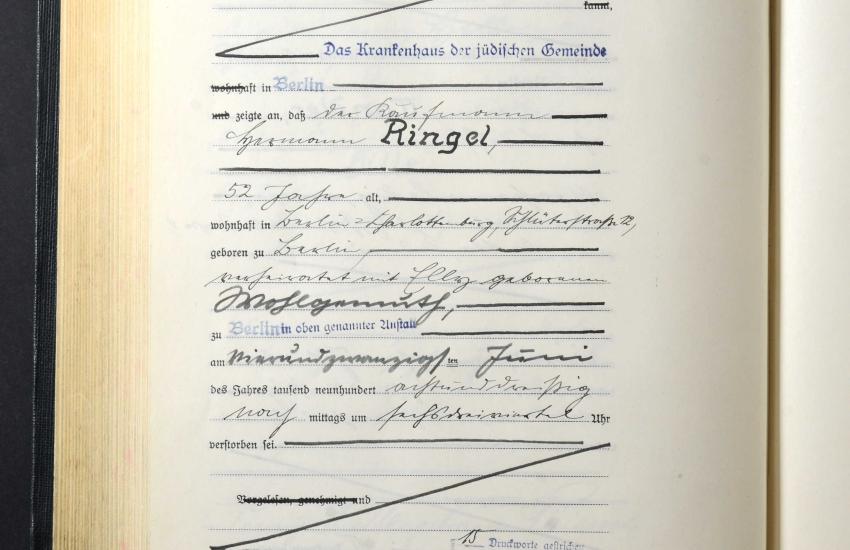 kannt,
Das Krankenhaus der jüdischen Gemeinde
wohnhaft in Berlin
und zeigte an, daß der Kaufmann
Hermann Ringel,
52 Jahre alt,
wohnhaft in Berlin-Charlottenburg, Schlüterstraße 12,
geboren zu Berlin,
verheiratet mit Elly geborenen
Wohlgemuth,
zu Berlin in oben genannter Anstalt
am vierundzwanzigsten Juni
des Jahres tausend neunhundert achtunddreißig
nach mittags um sechsdreiviertel Uhr
verstorben sei.
Vorgelesen, genehmigt und
15 Druckworte gestrichen